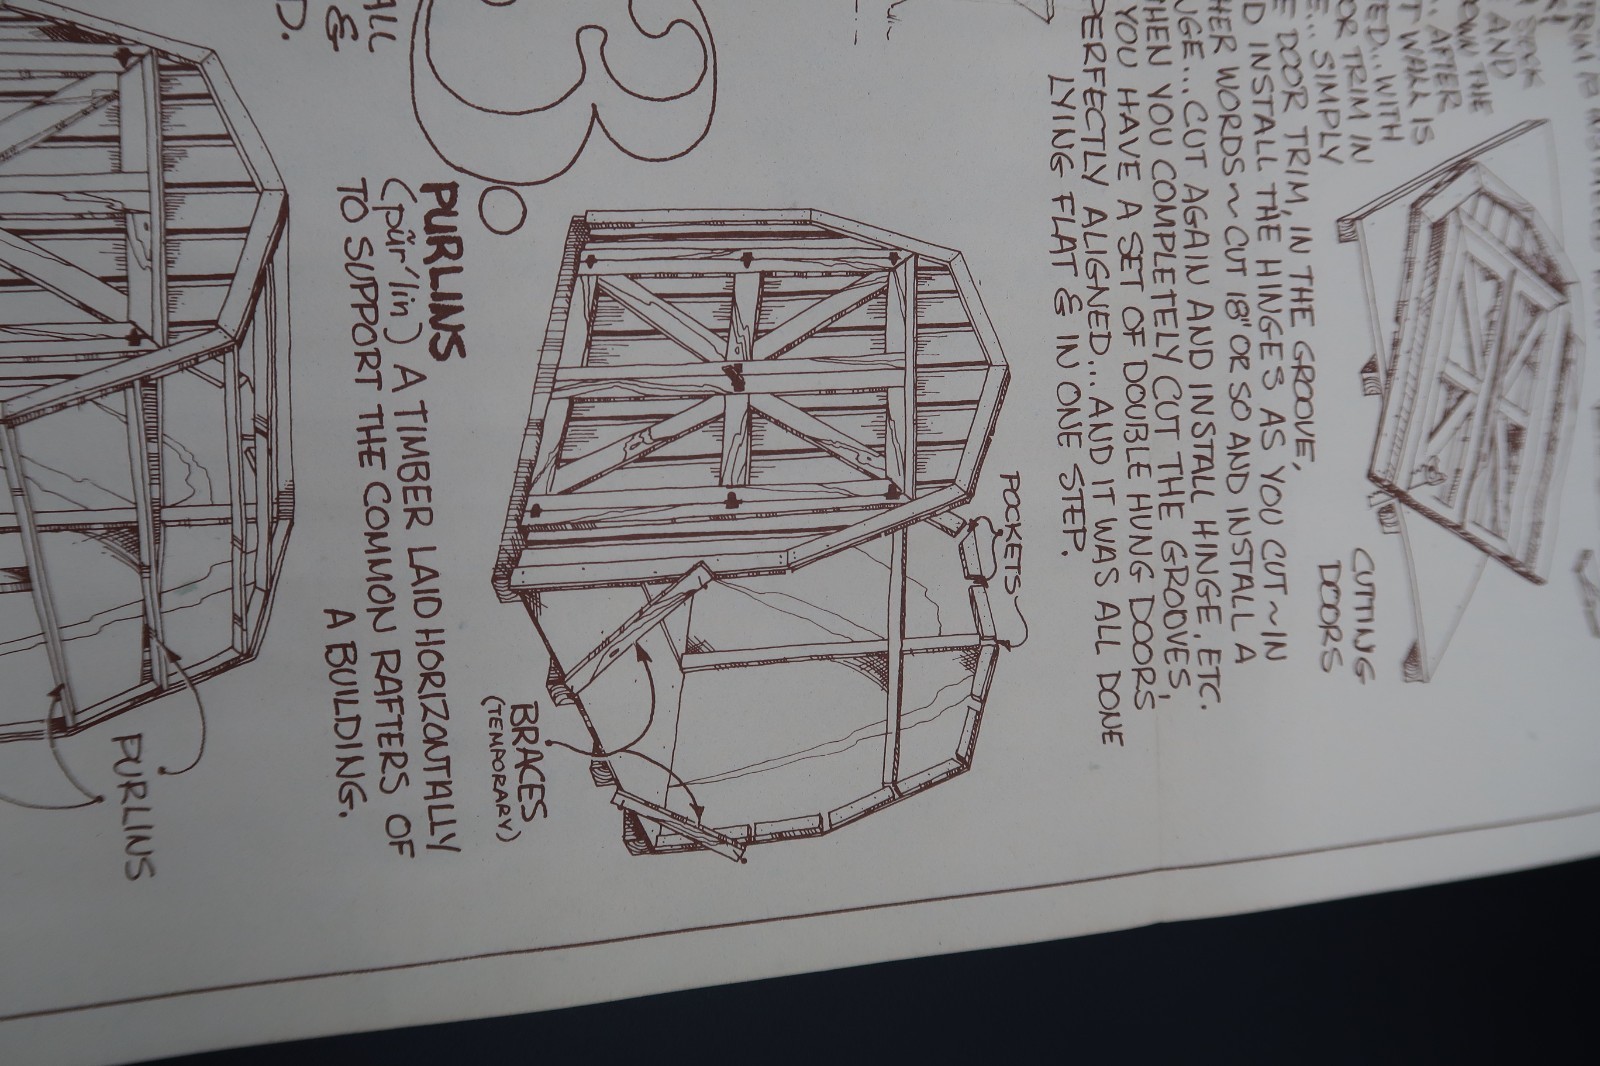 TRIM
AND
DOWN THE
... AFTER
WALL IS
... WITH
TRIM IN
... SIMPLY
DOOR TRIM, IN THE GROOVE,
INSTALL THE HINGES AS YOU CUT ~ IN
WORDS ~ CUT 18" OR SO AND INSTALL A
... CUT AGAIN AND INSTALL HINGE, ETC.
WHEN YOU COMPLETELY CUT THE GROOVES,
YOU HAVE A SET OF DOUBLE HUNG DOORS
PERFECTLY ALIGNED... AND IT WAS ALL DONE
LYING FLAT & IN ONE STEP.
CUTTING
DOORS
POCKETS
BRACES
(TEMPORARY)
3.
PURLINS
(pûr'lin) A TIMBER LAID HORIZONTALLY
TO SUPPORT THE COMMON RAFTERS OF
A BUILDING.
ALL
&
D.
PURLINS